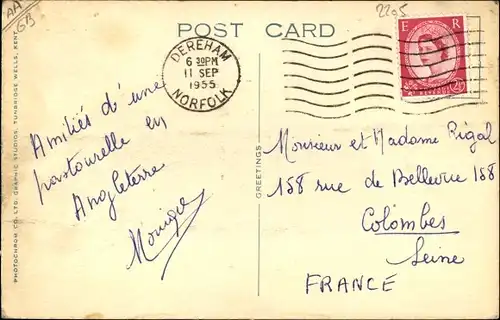 AA
GB
2205
POST CARD
DEREHAM
6 30PM
11 SEP
1955
NORFOLK
E R
2½
Amitiés d'une
pastourelle en
Angleterre
Monique
Monsieur et Madame Rigal
158 rue de Bellevue 158
Colombes
Seine
FRANCE
GREETINGS
PHOTOCHROM CO. LTD., GRAPHIC STUDIOS, TUNBRIDGE WELLS, KENT.